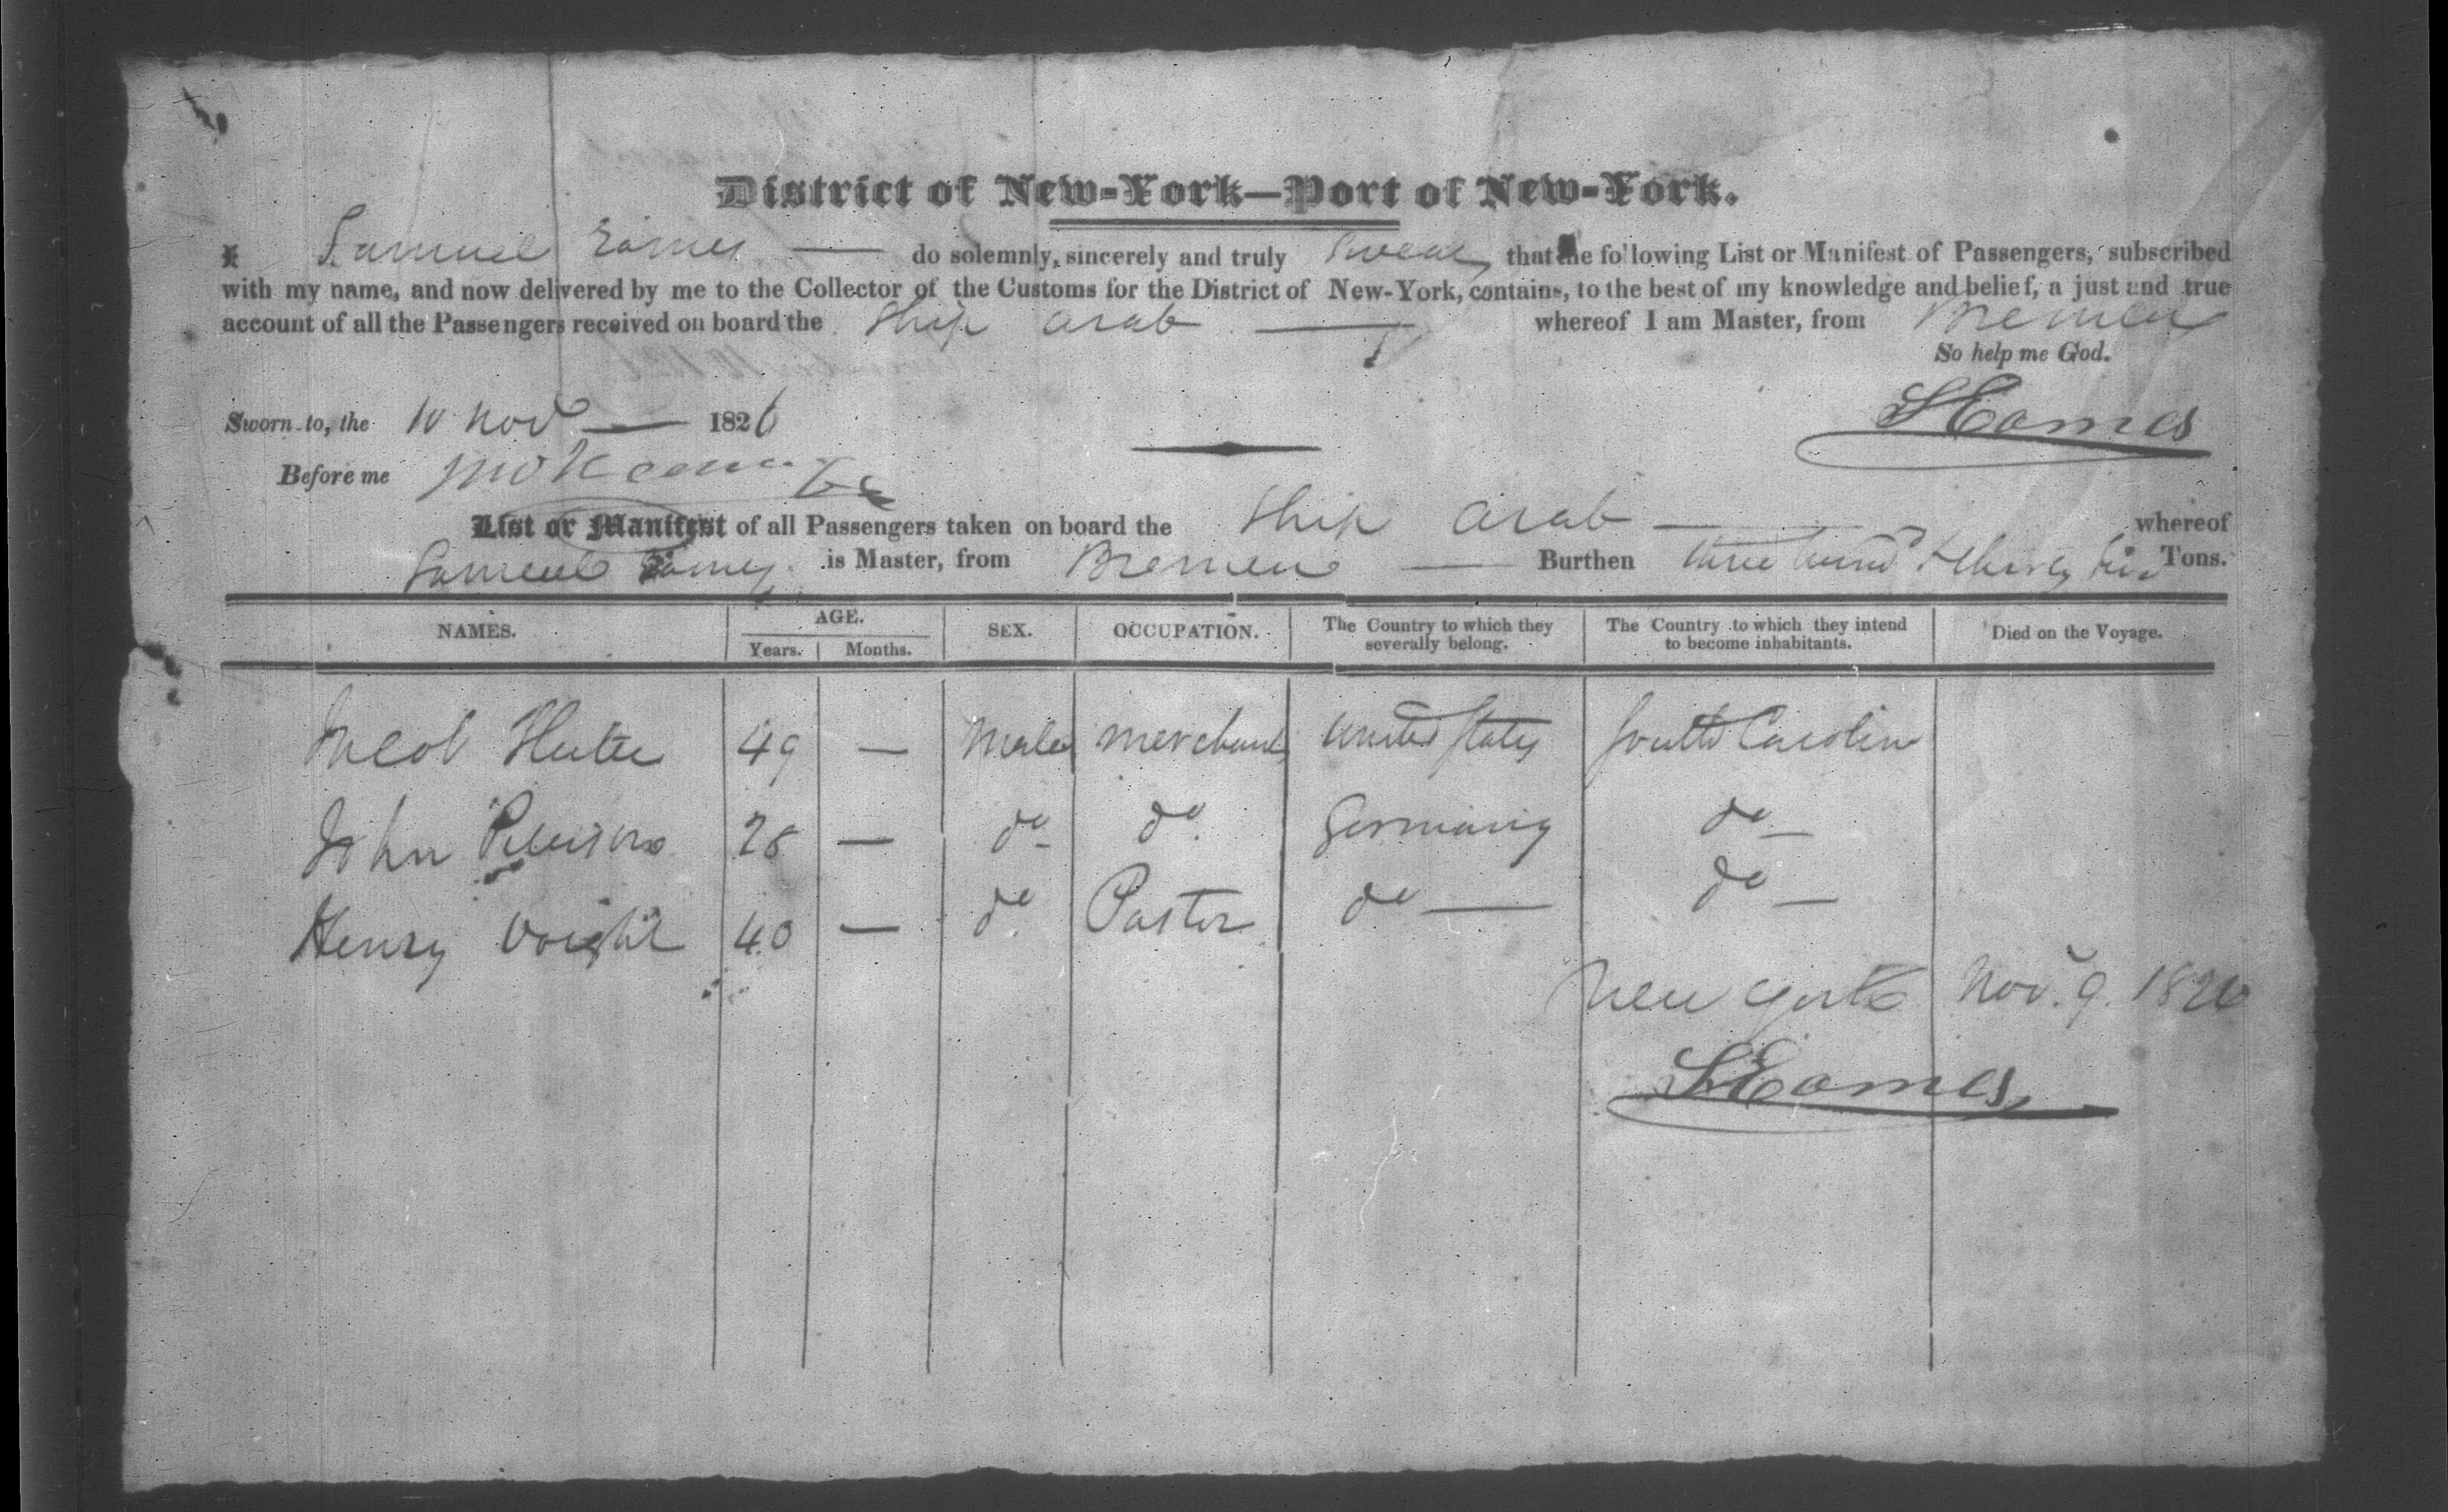 District of New-York—Port of New-York.
I Samuel Eames — do solemnly, sincerely and truly swear that the following List or Manifest of Passengers, subscribed
with my name, and now delivered by me to the Collector of the Customs for the District of New-York, contains, to the best of my knowledge and belief, a just and true
account of all the Passengers received on board the Ship Arab — whereof I am Master, from Bremen
So help me God.
Sworn to, the 10 Nov — 1826
S Eames
Before me
List or Manifest of all Passengers taken on board the Ship Arab — whereof
Samuel Eames is Master, from Bremen — Burthen three hund & thirty Tons.
NAMES. AGE. SEX. OCCUPATION. The Country to which they severally belong. The Country to which they intend to become inhabitants. Died on the Voyage.
Years. Months.
Jacob 49 — Male merchant United States South Carolina
John 28 — do do. Germany do —
Henry 40 — do Pastor do — do —
New York Nov. 9. 1826
S Eames